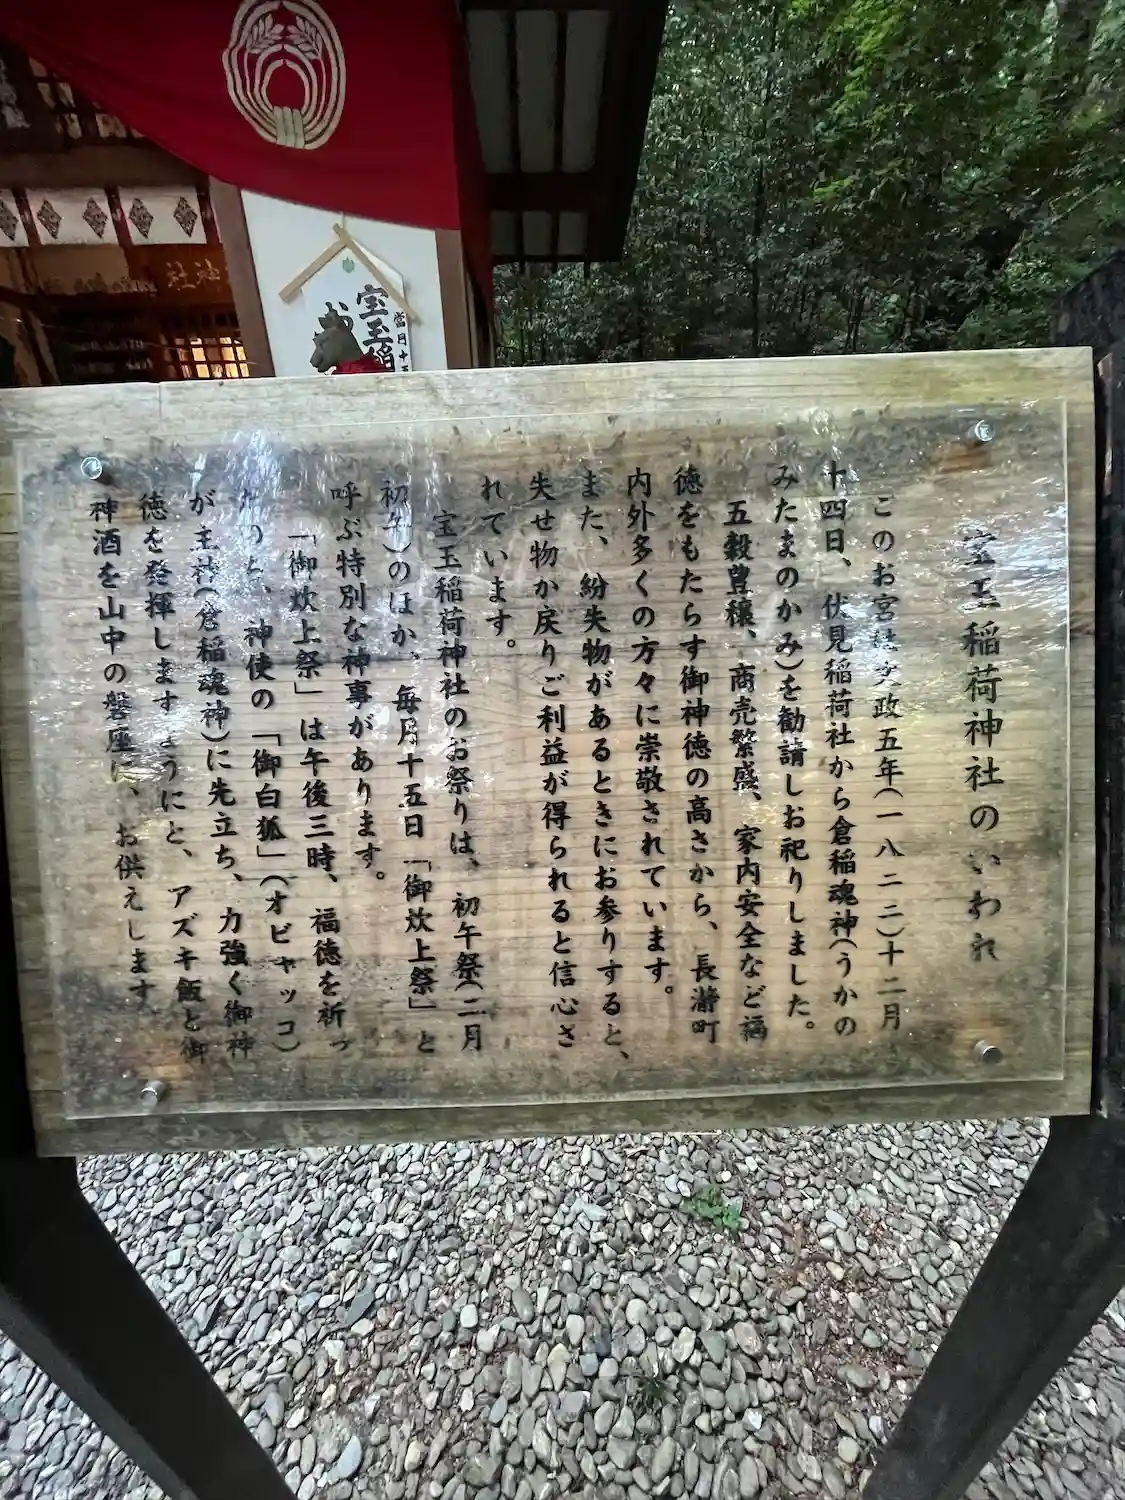 宝玉稲荷神社のいわれ
このお宮は文政五年(一八二二)十二月
十四日、伏見稲荷社から倉稲魂神(うかの
みたまのかみ)を勧請しお祀りしました。
五穀豊穣、商売繁盛、家内安全など福
徳をもたらす御神徳の高さから、長瀞町
内外多くの方々に崇敬されています。
また、紛失物があるときにお参りすると、
失せ物か戻りご利益が得られると信心さ
れています。
宝玉稲荷神社のお祭りは、初午祭(二月
初午)のほか、毎月十五日「御炊上祭」と
呼ぶ特別な神事があります。
「御炊上祭」は午後三時、福徳を祈っ
のち、神使の「御白狐」(オビャッコ)
が主神(倉稲魂神)に先立ち、力強く御神
徳を発揮しますようにと、アズキ飯と御
神酒を山中の磐座に、お供えします
神社
宝玉稲
當月十五